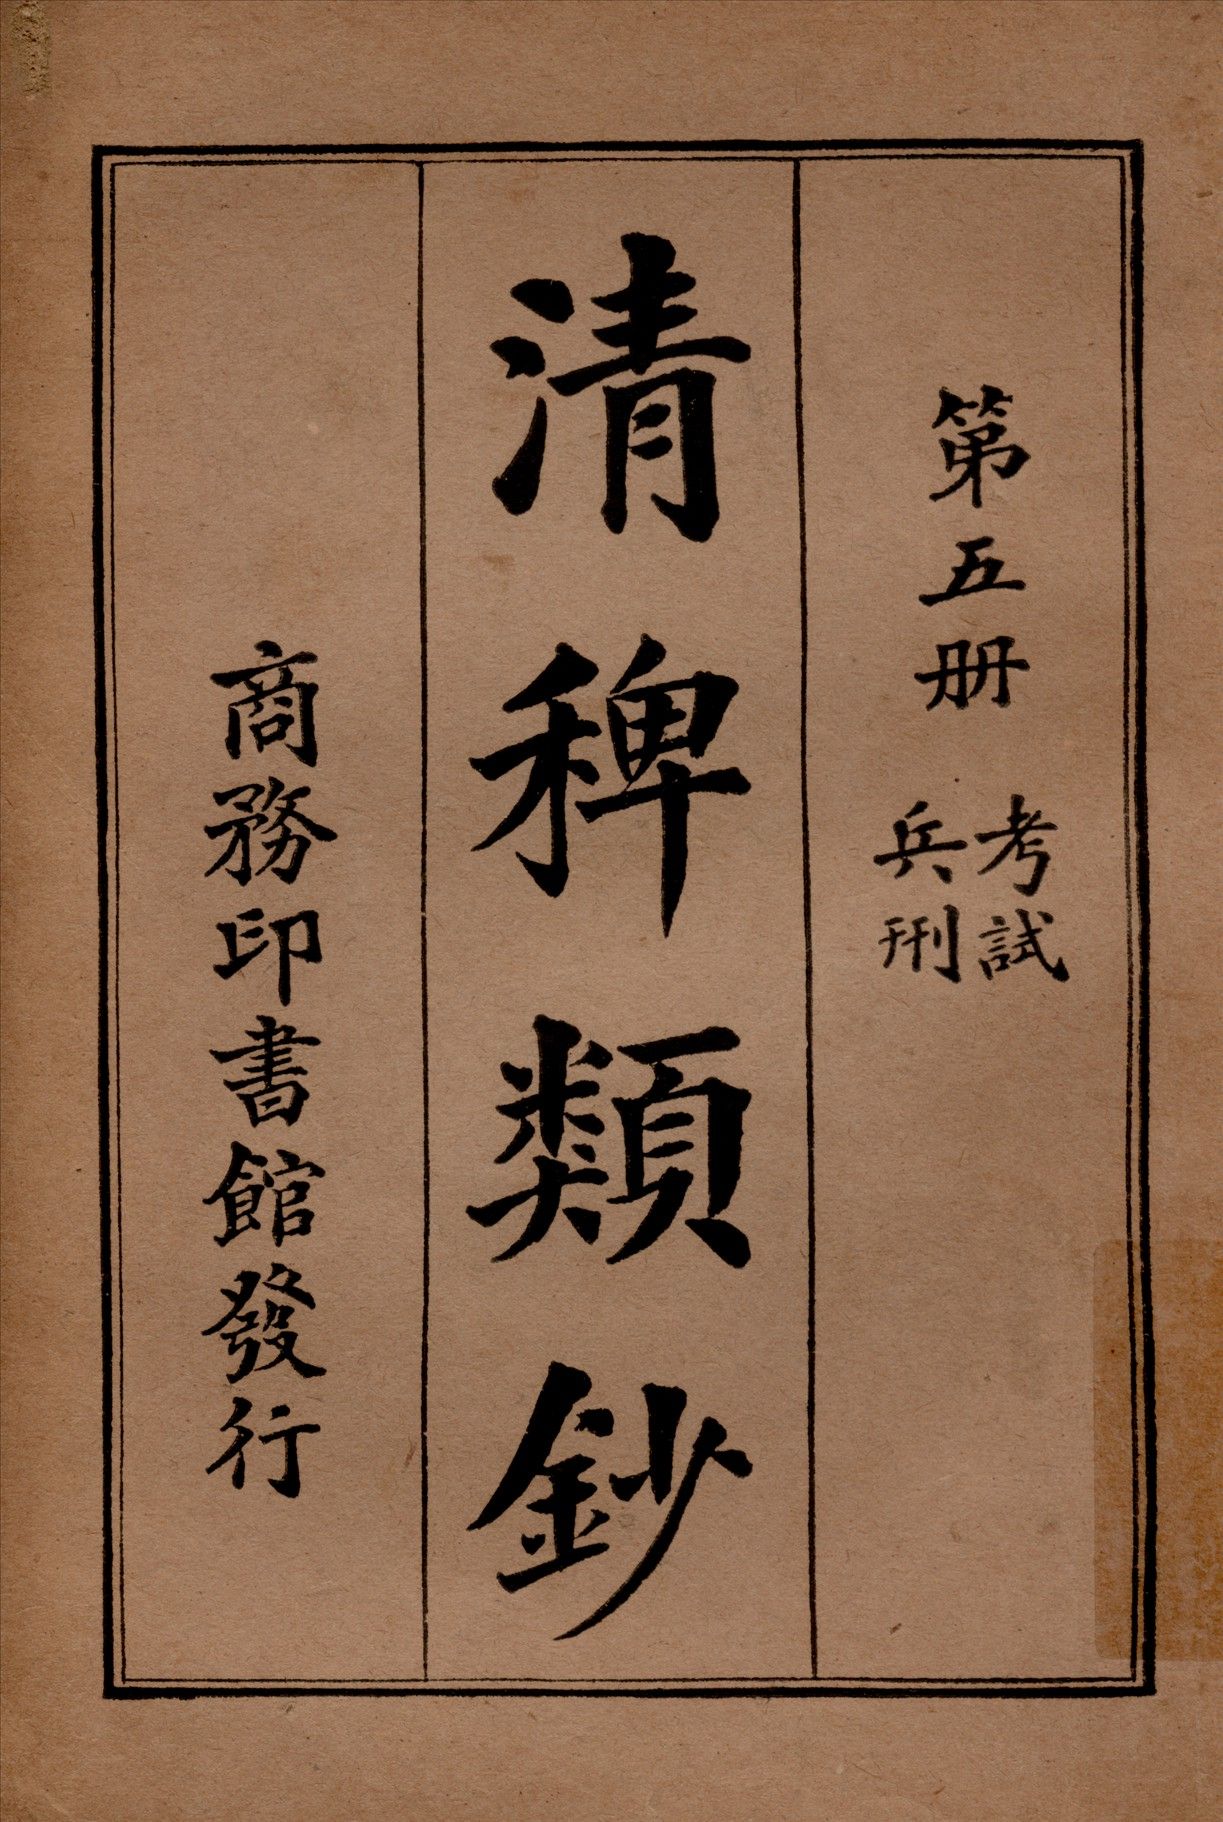 第五册
考試
兵刑
清稗類鈔
商務印書館發行